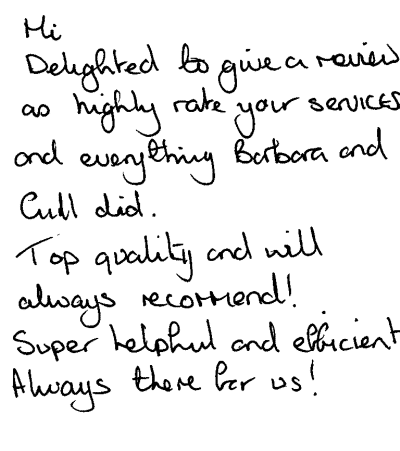 Hi
Delighted to give a review
as highly rate your services
and everything Barbara and
Cull did.
Top quality and will
always recommend!
Super helpful and efficient
Always there for us!